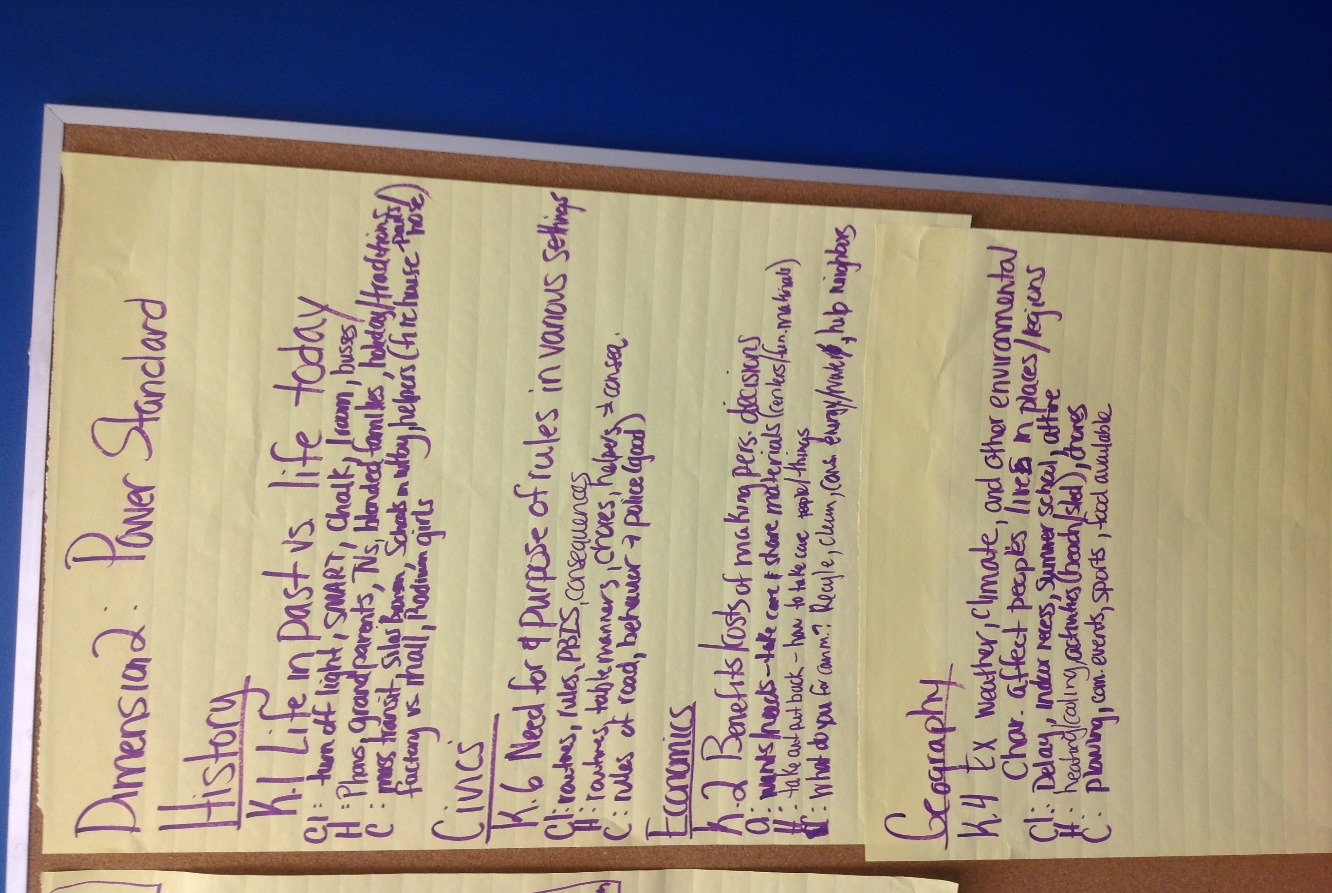 Dimension 2: Power Standard
History
K.1 Life in past vs. life today
Cl: turn off light, SMART, Chalk, room, busses
H: Phones, grandparents, TVs, blended families, holiday/traditions
C: mass transit, Silas Schools military, helpers (firehouse - pants/hose)
factory vs. mall, Radium girls
Civics
K.6 Need for & purpose of rules in various settings
Cl: routines, rules, PBIS, consequences
H: routines, table manners, chores, helpers → conseq.
C: rules of road, behavior → police (good)
Economics
K.2 Benefits/costs of making pers. decisions
Cl: wants/needs - take care & share materials (centers/
H: take out put back - how to take care people/things
C: What do you for comm? Recycle, clean, cons. energy/water, help neighbors
Geography
K.4 Ex weather, climate, and other environmental
Char. affect peoples lives in places/regions
Cl: Delay, indoor recess, summer school, attire
H: heating/cooling, activities (beach/sled), chores
C: plowing, com. events, sports, food available